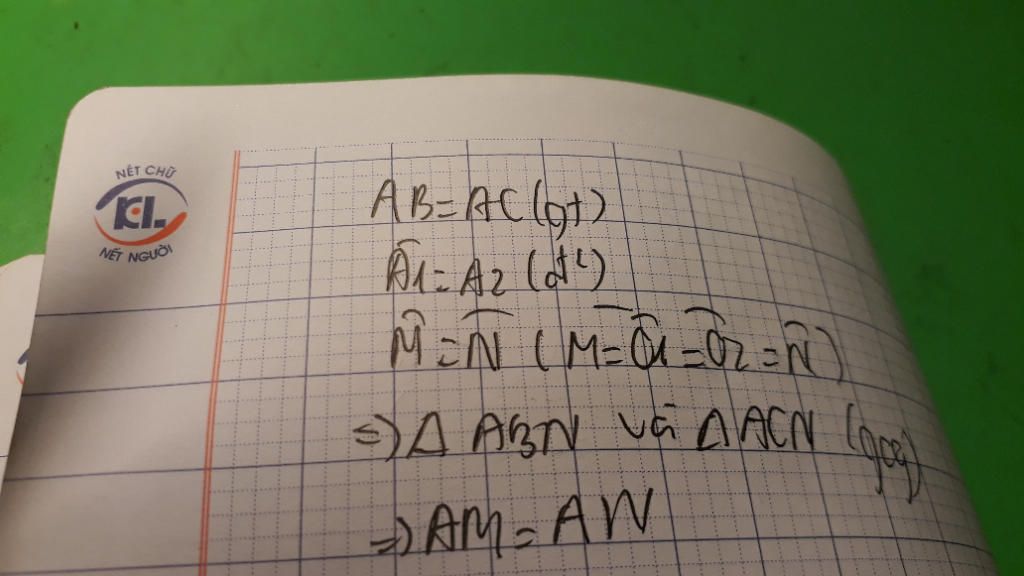 NÉT CHỮ
KL
NẾT NGƯỜI
AB = AC (gt)
Â1 = A2 (đ²)
M̂ = N̂ (M̂ = Ô1 = Ô2 = N̂)
=> Δ ABN và Δ ACN (gcg)
=> AM = AN